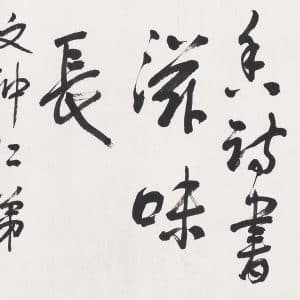 香詩書
滋味
長
文仲仁弟